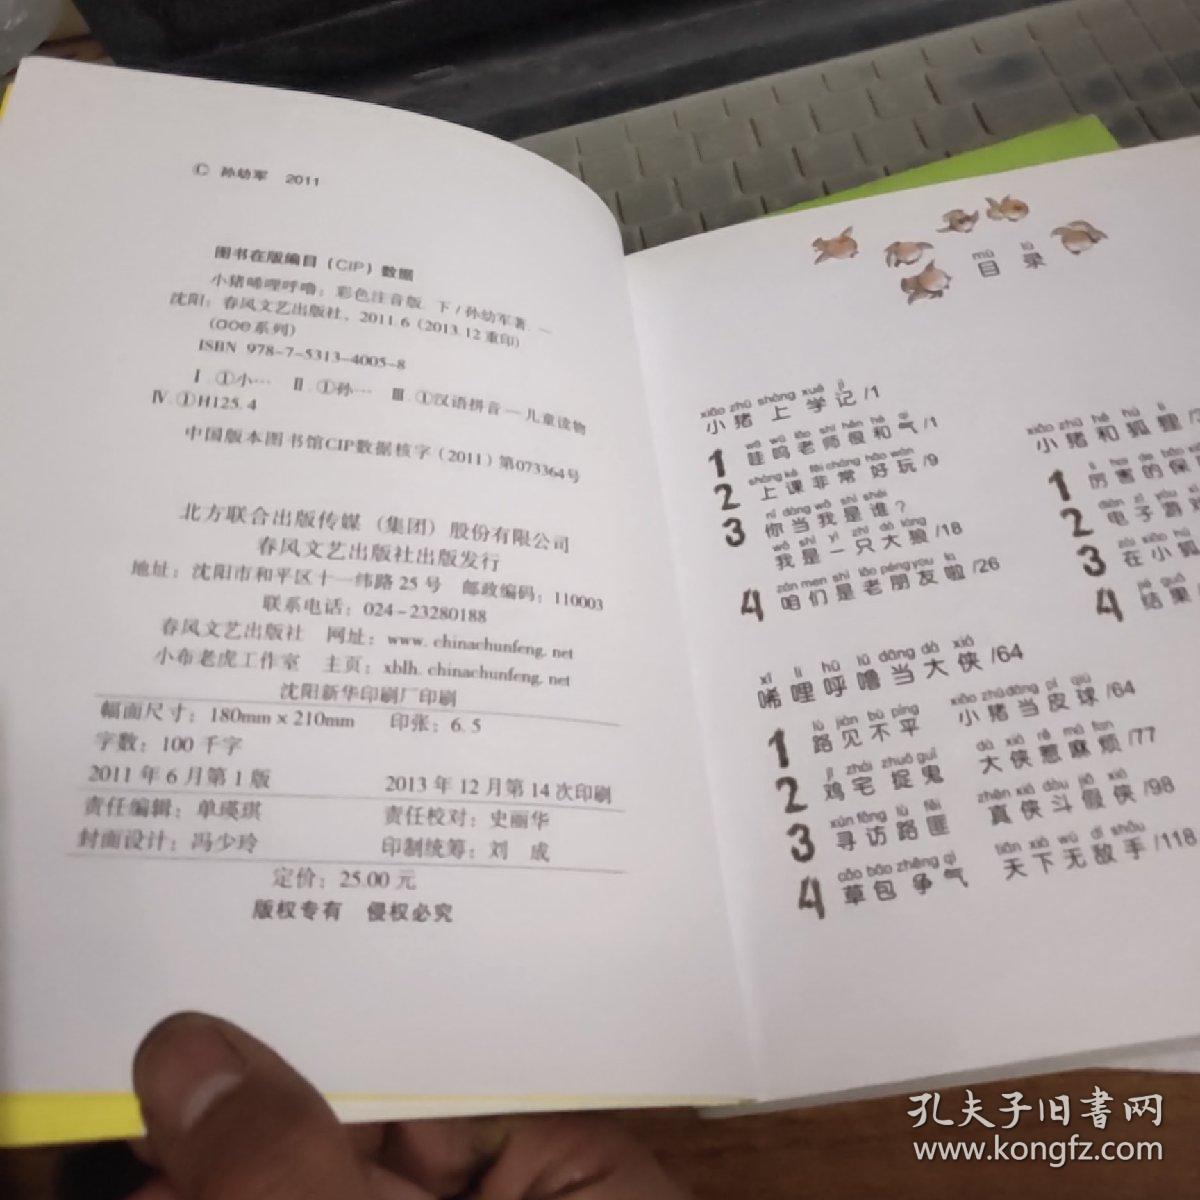 © 孙幼军 2011
图书在版编目（CIP）数据
小猪唏哩呼噜：彩色注音版. 下/孙幼军著. —
沈阳：春风文艺出版社，2011.6（2013.12重印）
（aoe系列）
ISBN 978-7-5313-4005-8
Ⅰ.①小… Ⅱ.①孙… Ⅲ.①汉语拼音—儿童读物
Ⅳ.①H125.4
中国版本图书馆CIP数据核字（2011）第073364号
北方联合出版传媒（集团）股份有限公司
春风文艺出版社出版发行
地址：沈阳市和平区十一纬路25号 邮政编码：110003
联系电话：024-23280188
春风文艺出版社 网址：www.chinachunfeng.net
小布老虎工作室 主页：xblh.chinachunfeng.net
沈阳新华印刷厂印刷
幅面尺寸：180mm×210mm 印张：6.5
字数：100千字
2011年6月第1版 2013年12月第14次印刷
责任编辑：单瑛琪 责任校对：史丽华
封面设计：冯少玲 印制统筹：刘 成
定价：25.00元
版权专有 侵权必究
mù lù
目 录
xiǎo zhū shàng xué jì
小猪上学记/1
wā wū lǎo shī hěn hé qì
1 哇呜老师很和气/1
shàng kè fēi cháng hǎo wán
2 上课非常好玩/9
nǐ dāng wǒ shì shéi
3 你当我是谁？
wǒ shì yì zhī dà láng
我是一只大狼/18
zán men shì lǎo péng you la
4 咱们是老朋友啦/26
xī li hū lū dāng dà xiá
唏哩呼噜当大侠/64
lù jiàn bù píng xiǎo zhū dāng pí qiú
1 路见不平 小猪当皮球/64
jī zhái zhuō guǐ dà xiá rě má fan
2 鸡宅捉鬼 大侠惹麻烦/77
xún fǎng lù fěi zhēn xiá dòu jiǎ xiá
3 寻访路匪 真侠斗假侠/98
cǎo bāo zhēng qì tiān xià wú dí shǒu
4 草包争气 天下无敌手/118
xiǎo zhū hé hú li
小猪和狐狸/
1 厉害的保
2 电子游戏
3 在小狐
4 结果
孔夫子旧书网
www.kongfz.com